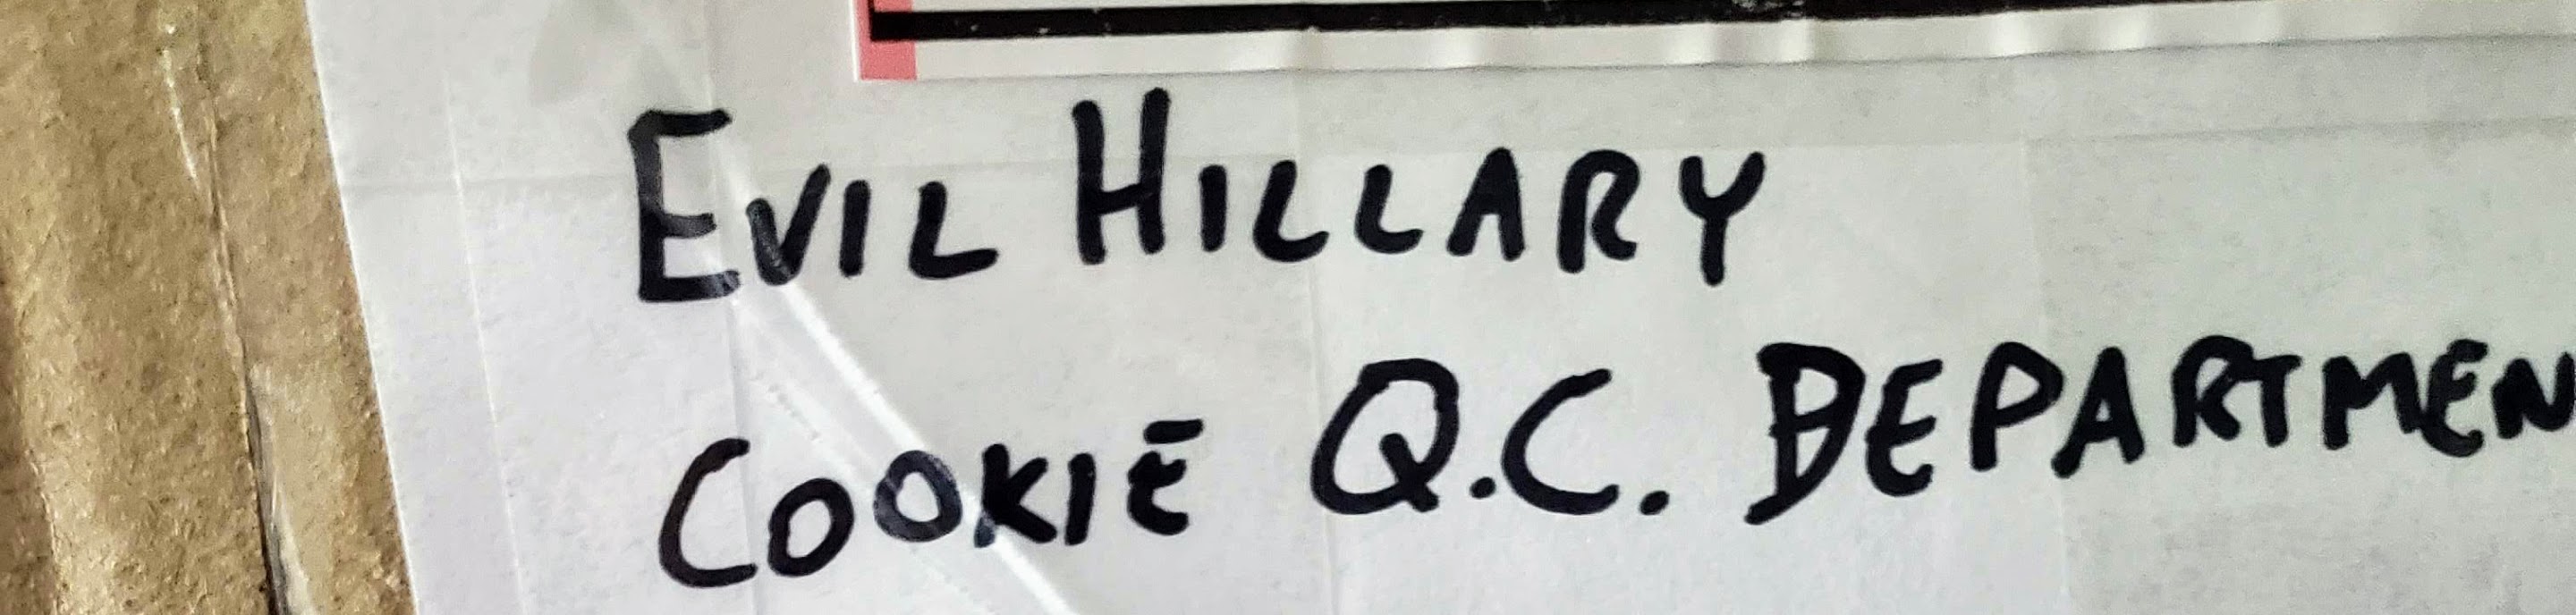 EVIL HILLARY
COOKIE Q.C. DEPARTMEN